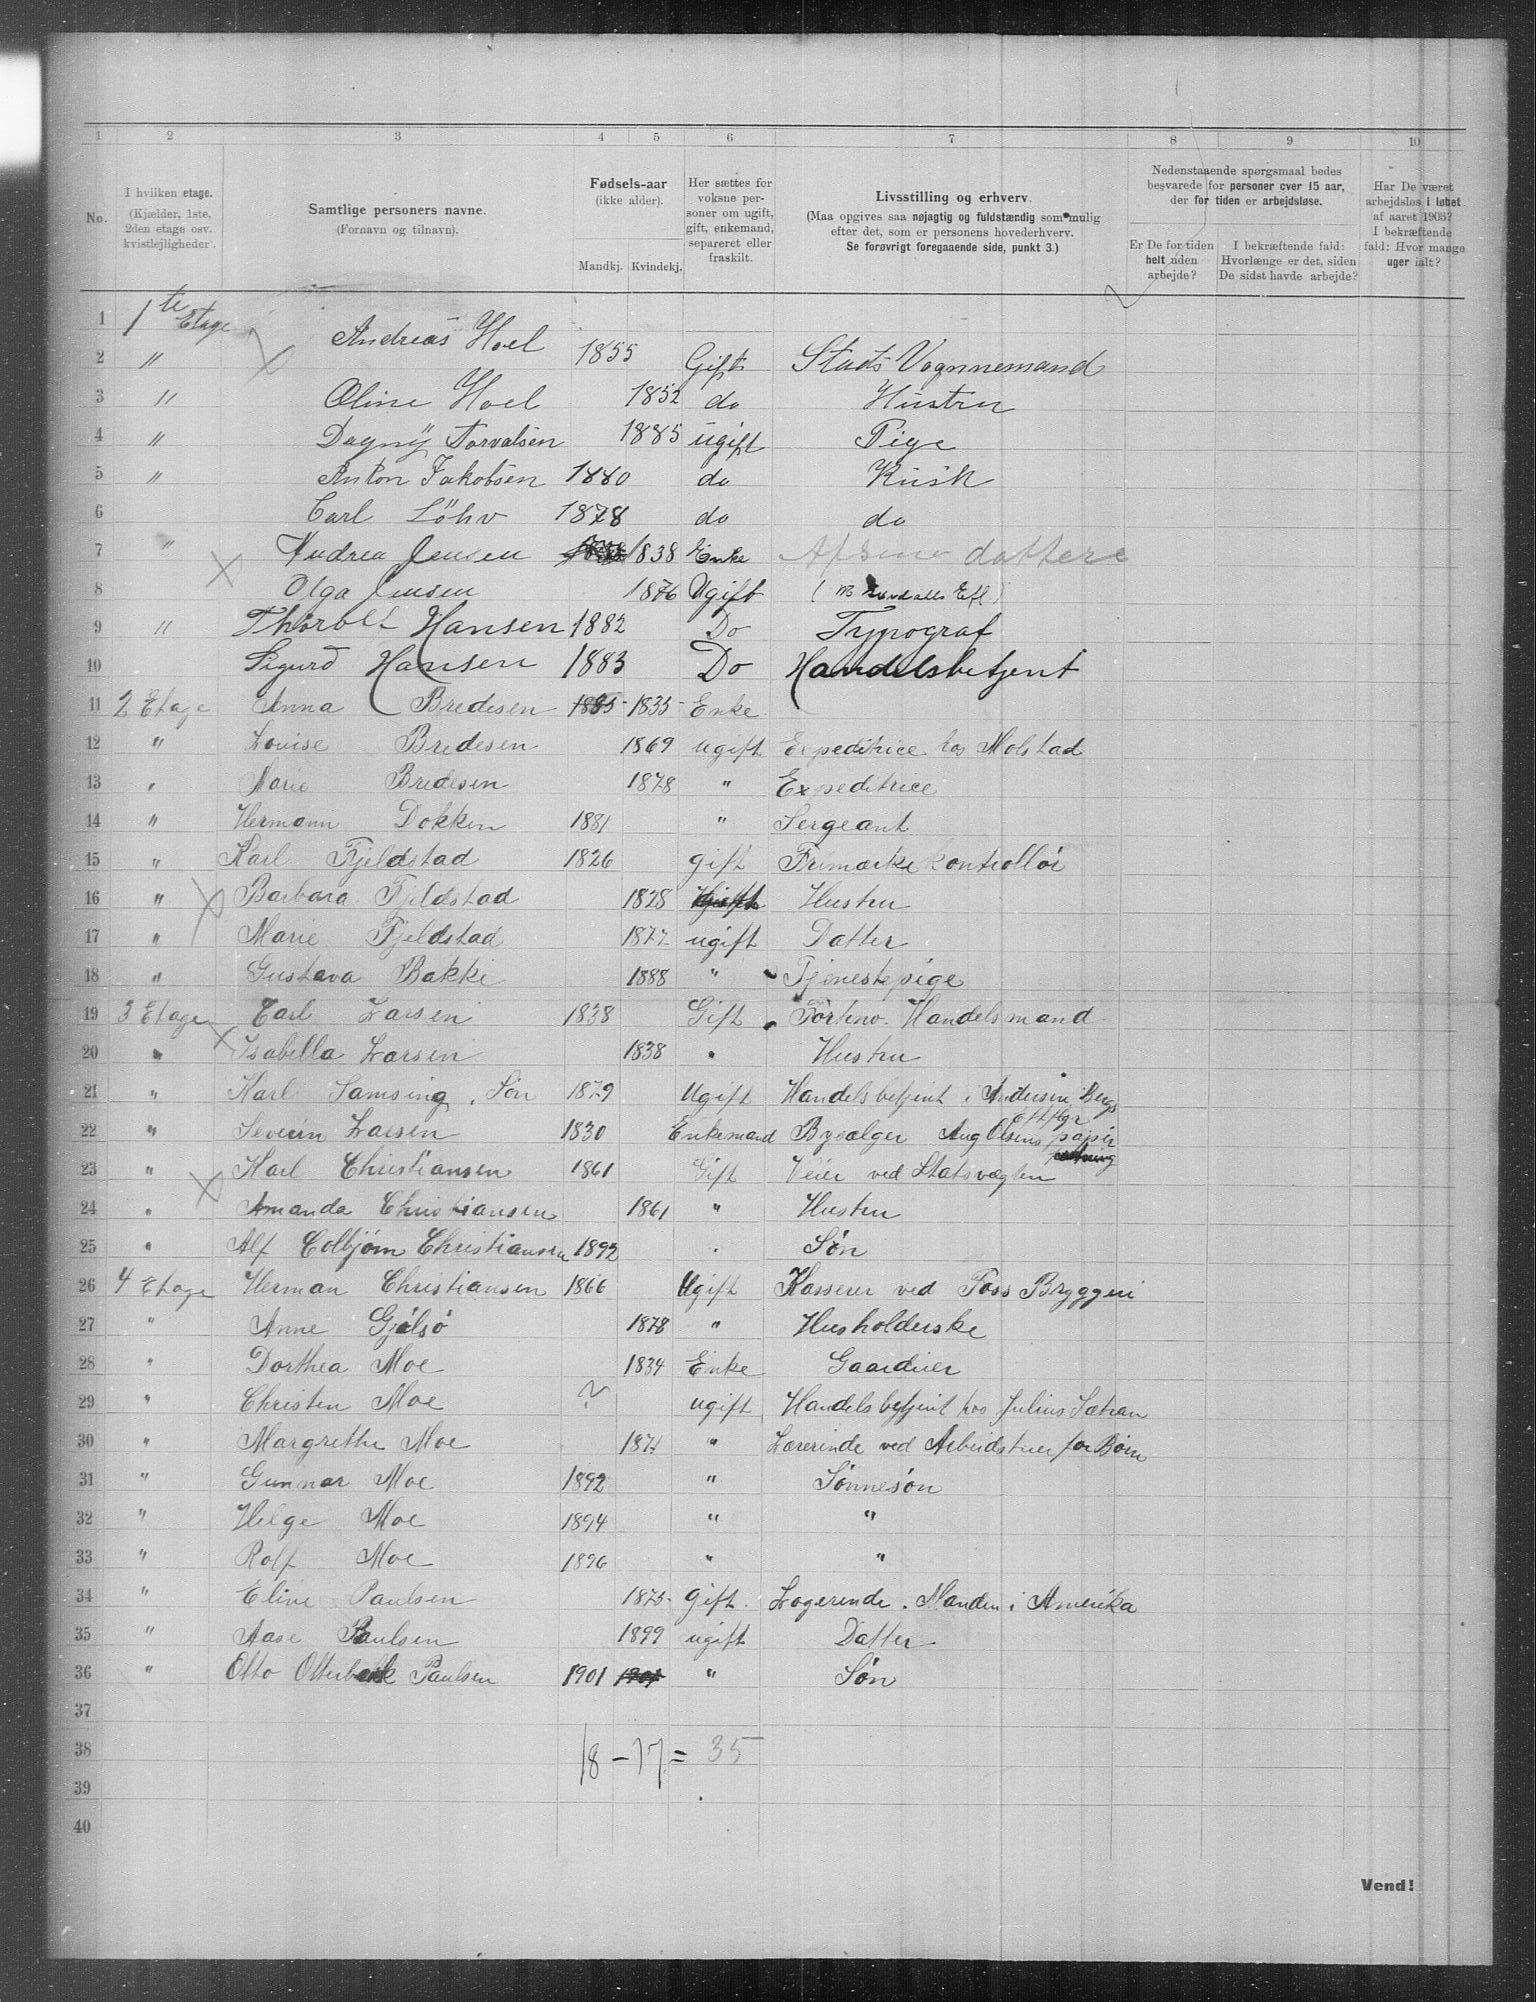 1 2 3 4 5 6 7 8 9 10
No.
I hvilken etage. (Kjælder, 1ste, 2den etage osv. kvistlejligheder).
Samtlige personers navne. (Fornavn og tilnavn).
Fødsels-aar (ikke alder). Mandkj. Kvindekj.
Her sættes for voksne personer om ugift, gift, enkemand, separeret eller fraskilt.
Livsstilling og erhverv. (Maa opgives saa nøjagtig og fuldstændig som mulig efter det, som er personens hovederhverv. Se forøvrigt foregaaende side, punkt 3.)
Nedenstaaende spørgsmaal bedes besvarede for personer over 15 aar, der for tiden er arbejdsløse.
Er De for tiden helt uden arbejde?
I bekræftende fald: Hvorlænge er det, siden De sidst havde arbejde?
Har De været arbejdsløs i løbet af aaret 1903? I bekræftende fald: Hvor mange uger ialt?
1 1te Etage
2 " Andreas Hoel 1855 Gift Stads Vognnemand
3 " Oline Hoel 1852 do Hustru
4 " Dagny Torvalsen 1885 ugift Pige
5 " Anton Jakobsen 1880 do Kusk
6 Carl Löhv 1878 do do
7 " Andrea Jensen 1838 Enke dattere
8 Olga Jensen 1876 Ugift
9 " Thorolf Hansen 1882 Do Typograf
10 Sigurd Hansen 1883 Do Handelsbetjent
11 2 Etage Anna Bredesen 1835 1835 Enke
12 " Louise Bredesen 1869 ugift Expeditrice hos Molstad
13 " Marie Bredesen 1878 " Expeditrice
14 " Hermann Dokken 1881 " Sergeant
15 " Karl Fjeldstad 1826 gift Frimærkekontrollør
16 " Barbara Fjeldstad 1828 Hustru
17 " Marie Fjeldstad 1877 ugift Datter
18 " Gustava Bakke 1888 " Tjenestepige
19 3 Etage Carl Larsen 1838 Gift Forhenv. Handelsmand
20 " Isabella Larsen 1838 " Hustru
21 " Karl Samsing, Søn 1879 Ugift Handelsbetjent i Andersen Bergs Eftflgr
22 " Severin Larsen 1830 Enkemand Bysælger Aug Olsens papir
23 " Karl Christiansen 1861 Gift Veier ved Statsvægten
24 " Amanda Christiansen 1861 " Hustru
25 " Alf Colbjørn Christiansen 1892 . Søn
26 4 Etage Herman Christiansen 1866 Ugift Kasserer ved Foss Bryggeri
27 " Anne Gjølsø 1878 " Husholderske
28 " Dorthea Moe 1834 Enke Gaardeier
29 " Christen Moe ? ugift Handelsbetjent hos Julius Sætran
30 " Margrethe Moe 1871 " Lærerinde ved Arbeidstuer for Børn
31 " Gunnar Moe 1892 " Sønnesøn
32 " Helge Moe 1894 " "
33 " Rolf Moe 1896 " "
34 " Eline Paulsen 1875 gift. Logerende. Manden i Amerika
35 " Aase Paulsen 1899 ugift Datter
36 " Otto Otterbeck Paulsen 1901 1901 " Søn
37
38 18 - 17 = 35
39
40
Vend!